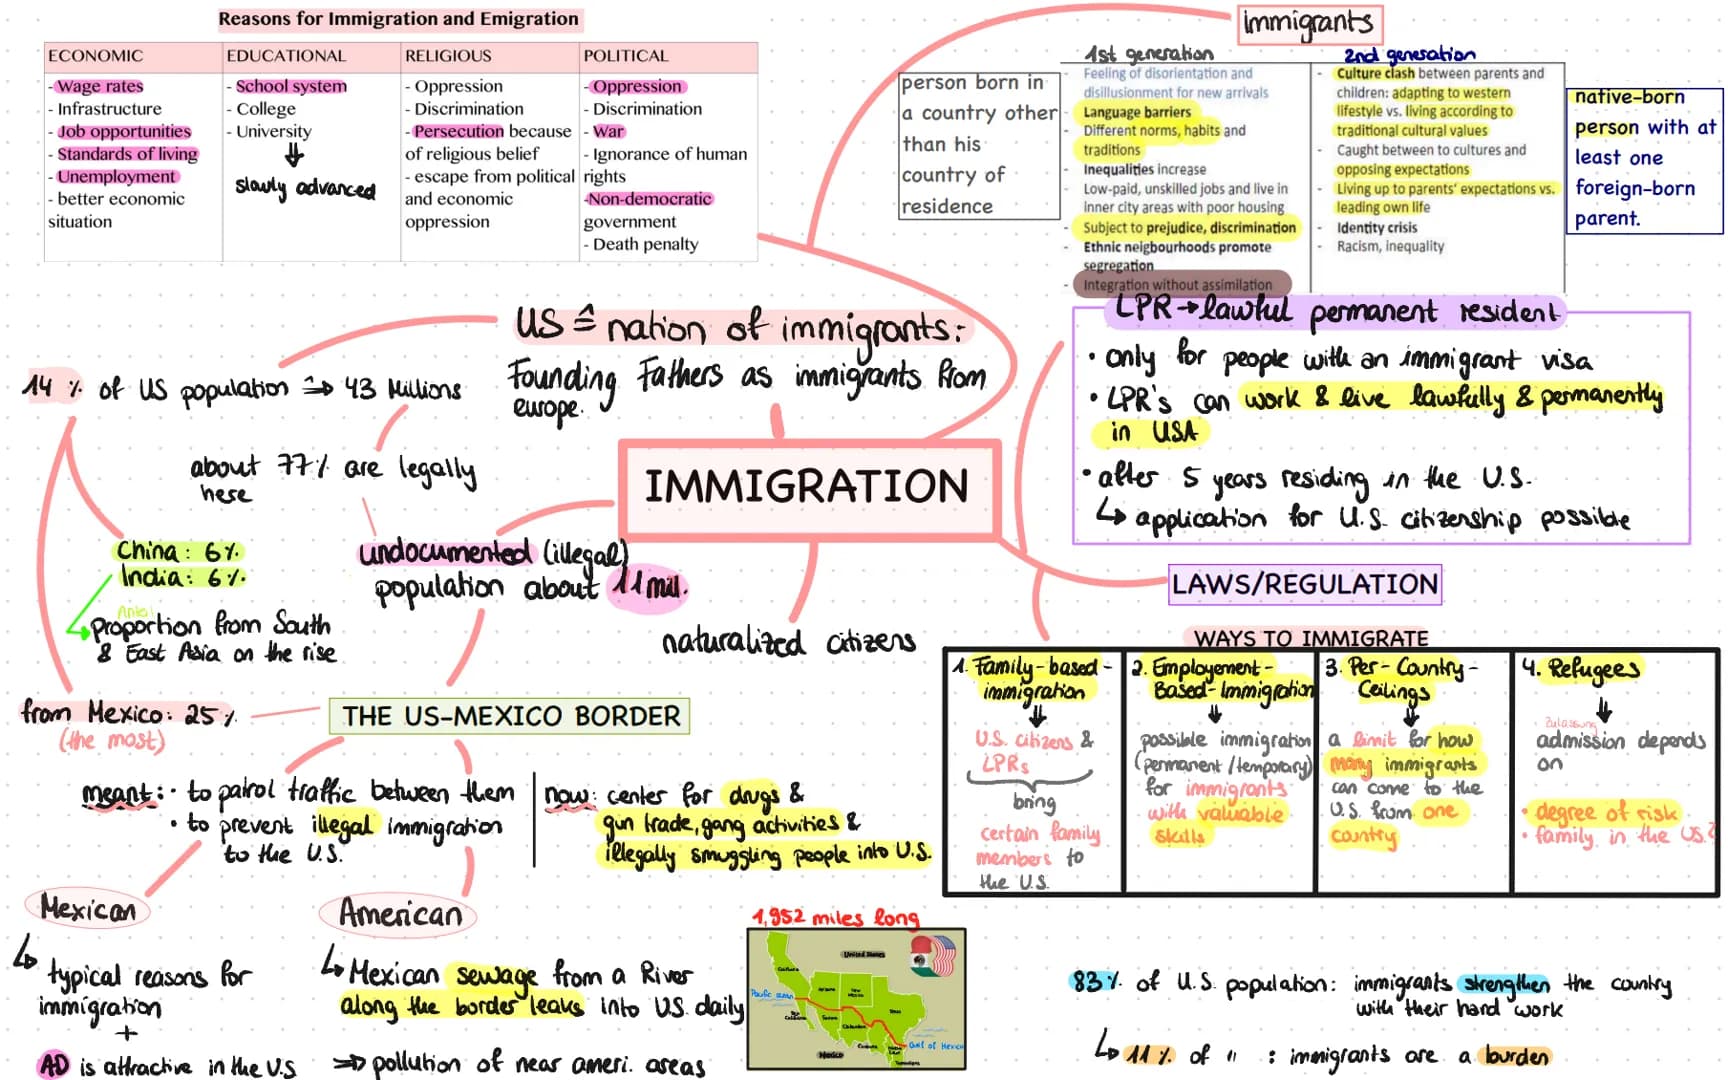 Reasons for Immigration and Emigration
ECONOMIC
- Wage rates
- Infrastructure
- Job opportunities
- Standards of living
- Unemployment
- better economic
situation
EDUCATIONAL
- School system
- College
- University
slowly advanced
RELIGIOUS
- Oppression
- Discrimination
- Persecution because
of religious belief
- escape from political
and economic
oppression
POLITICAL
- Oppression
- Discrimination
- War
- Ignorance of human
rights
-Non-democratic
government
- Death penalty
immigrants
person born in
a country other
than his
country of
residence
1st generation
- Feeling of disorientation and
disillusionment for new arrivals
- Language barriers
- Different norms, habits and
traditions
- Inequalities increase
- Low-paid, unskilled jobs and live in
inner city areas with poor housing
- Subject to prejudice, discrimination
- Ethnic neigbourhoods promote
segregation
- Integration without assimilation
2nd generation
- Culture clash between parents and
children: adapting to western
lifestyle vs. living according to
traditional cultural values
- Caught between to cultures and
opposing expectations
- Living up to parents' expectations vs.
leading own life
- Identity crisis
- Racism, inequality
native-born
person with at
least one
foreign-born
parent.
US ≙ nation of immigrants:
Founding Fathers as immigrants from
europe.
14 % of US population ⇒ 43 Millions
about 77% are legally
here
China: 6%
India: 6%
Anteil
proportion from South
& East Asia on the rise
from Mexico: 25%
(the most)
IMMIGRATION
undocumented (illegal)
population about 11 mil.
naturalized citizens
LPR → lawful permanent resident
• only for people with an immigrant visa
• LPR's can work & live lawfully & permanently
in USA
• after 5 years residing in the U.S.
↳ application for U.S. citizenship possible
LAWS/REGULATION
WAYS TO IMMIGRATE
1. Family-based-
immigration
U.S. citizens &
LPRs
bring
certain family
members to
the U.S.
2. Employement-
Based-Immigration
possible immigration
(permanent/temporary)
for immigrants
with valuable
skills
3. Per-Country-
Ceilings
a limit for how
many immigrants
can come to the
U.S. from one
country
4. Refugees
Zulassung
admission depends
on
• degree of risk
• family in the US?
THE US-MEXICO BORDER
meant: • to patrol traffic between them
• to prevent illegal immigration
to the U.S.
now: center for drugs &
gun trade, gang activities &
illegally smuggling people into U.S.
Mexican
↳ typical reasons for
immigration
+
AD is attractive in the U.S
American
↳ Mexican sewage from a River
along the border leaks into U.S. daily
⇒ pollution of near ameri. areas
1,952 miles long
United States
California
Arizona
New
Mexico
Texas
Pacific ocean
Baja
California
Sonora
Chihuahua
Coahuila
Nuevo
León
Tamaulipas
Mexico
Gulf of Mexico
83% of U.S. population: immigrants strengthen the country
with their hard work
↳ 11% of " : immigrants are a burden